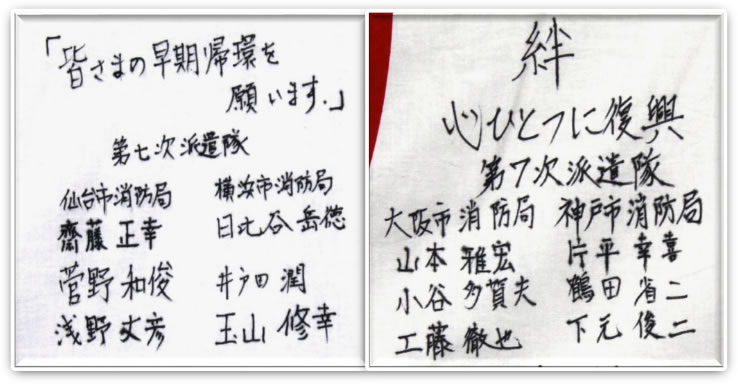 「皆さまの早期帰環を
願います.」
第七次派遣隊
仙台市消防局 横浜市消防局
齋藤 正幸 日比谷 岳徳
菅野 和俊 井戸田 潤
浅野 丈彦 玉山 修幸
絆
心ひとつに復興
第7次派遣隊
大阪市消防局 神戸市消防局
山本 雅宏 片平 幸喜
小谷 多賀夫 鶴田 省二
工藤 徹也 下元 俊二